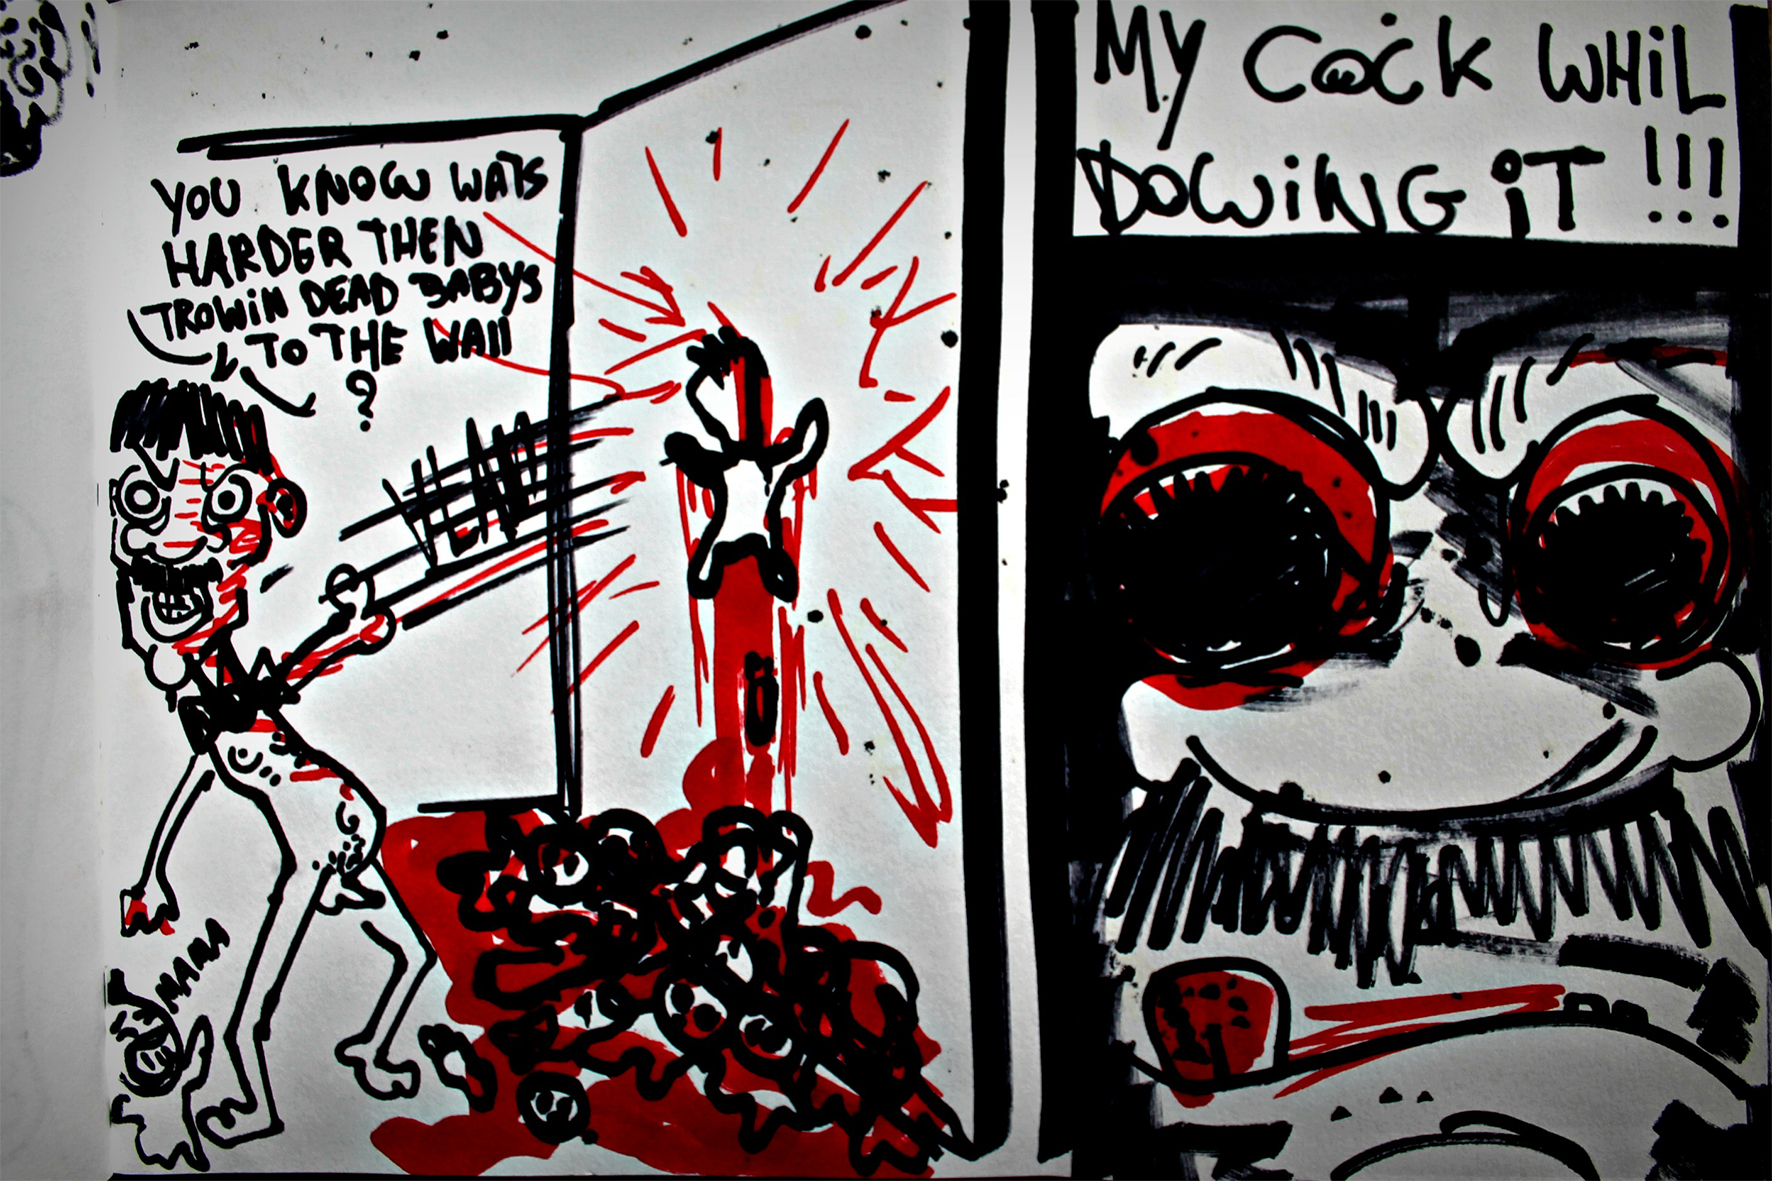 YOU KNOW WATS
HARDER THEN
TROWIN DEAD BABYS
TO THE WAll
?
MAMA
MY COCK WHiL
DOWiNG iT !!!